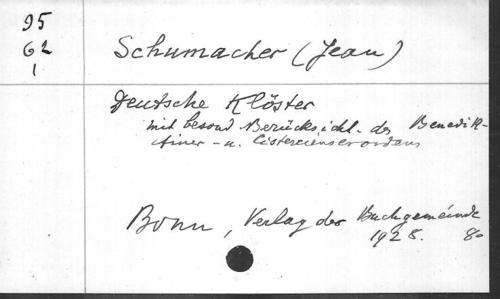 95
G2
1
Schumacher (Jean)
Deutsche Klöster
mit besond Berücksicht. des Benedik-
tiner- u. Cistercienserordens
Bonn, Verlag der Buchgemeinde
1928. 8o